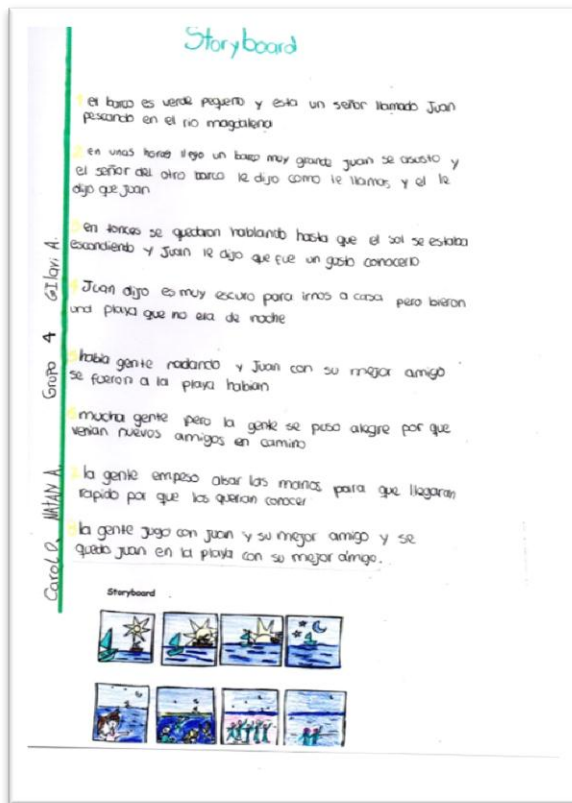 Storyboard
1 el barco es verde pequeño y esta un señor llamado Juan
pescando en el rio magdalena
2 en unas horas llego un barco muy grande Juan se asusto y
el señor del otro barco le dijo como te llamas y el le
dijo que Juan
3 en tonces se quedaron hablando hasta que el sol se estaba
escondiendo y Juan le dijo que fue un gusto conocerlo
4 Juan dijo es muy escuro para irnos a casa pero bieron
una playa que no era de noche
5 habia gente nadando y Juan con su mejor amigo
se fueron a la playa habian
6 mucha gente pero la gente se puso alegre por que
venian nuevos amigos en camino
7 la gente empeso alsar las manos para que llegaran
rapido por que los querian conocer
8 la gente jugo con Juan y su mejor amigo y se
quedo Juan en la playa con su mejor amigo.
Carol D. NATALY A. Grupo 4 GIlary A.
Storyboard